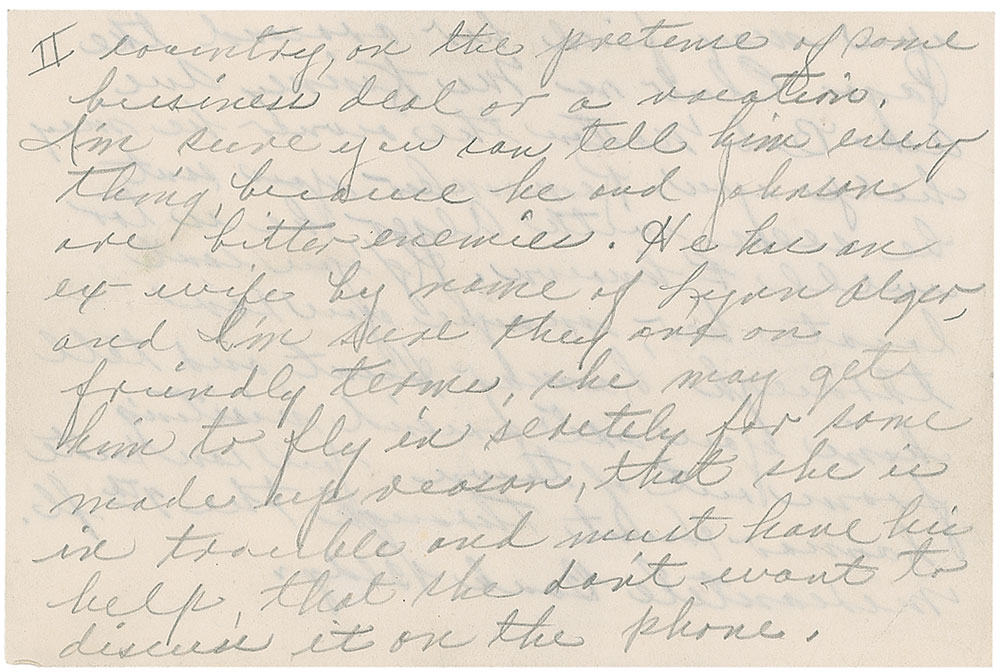 II country, on the pretense of some
business deal or a vacation.
I'm sure you can tell him every
thing, because he and Johnson
are bitter enemies. He has an
ex wife by name of Lynn Alger,
and I'm sure they are on
friendly terms, she may get
him to fly in secretely for some
made up reason, that she is
in trouble and must have his
help, that she don't want to
discuss it on the phone.